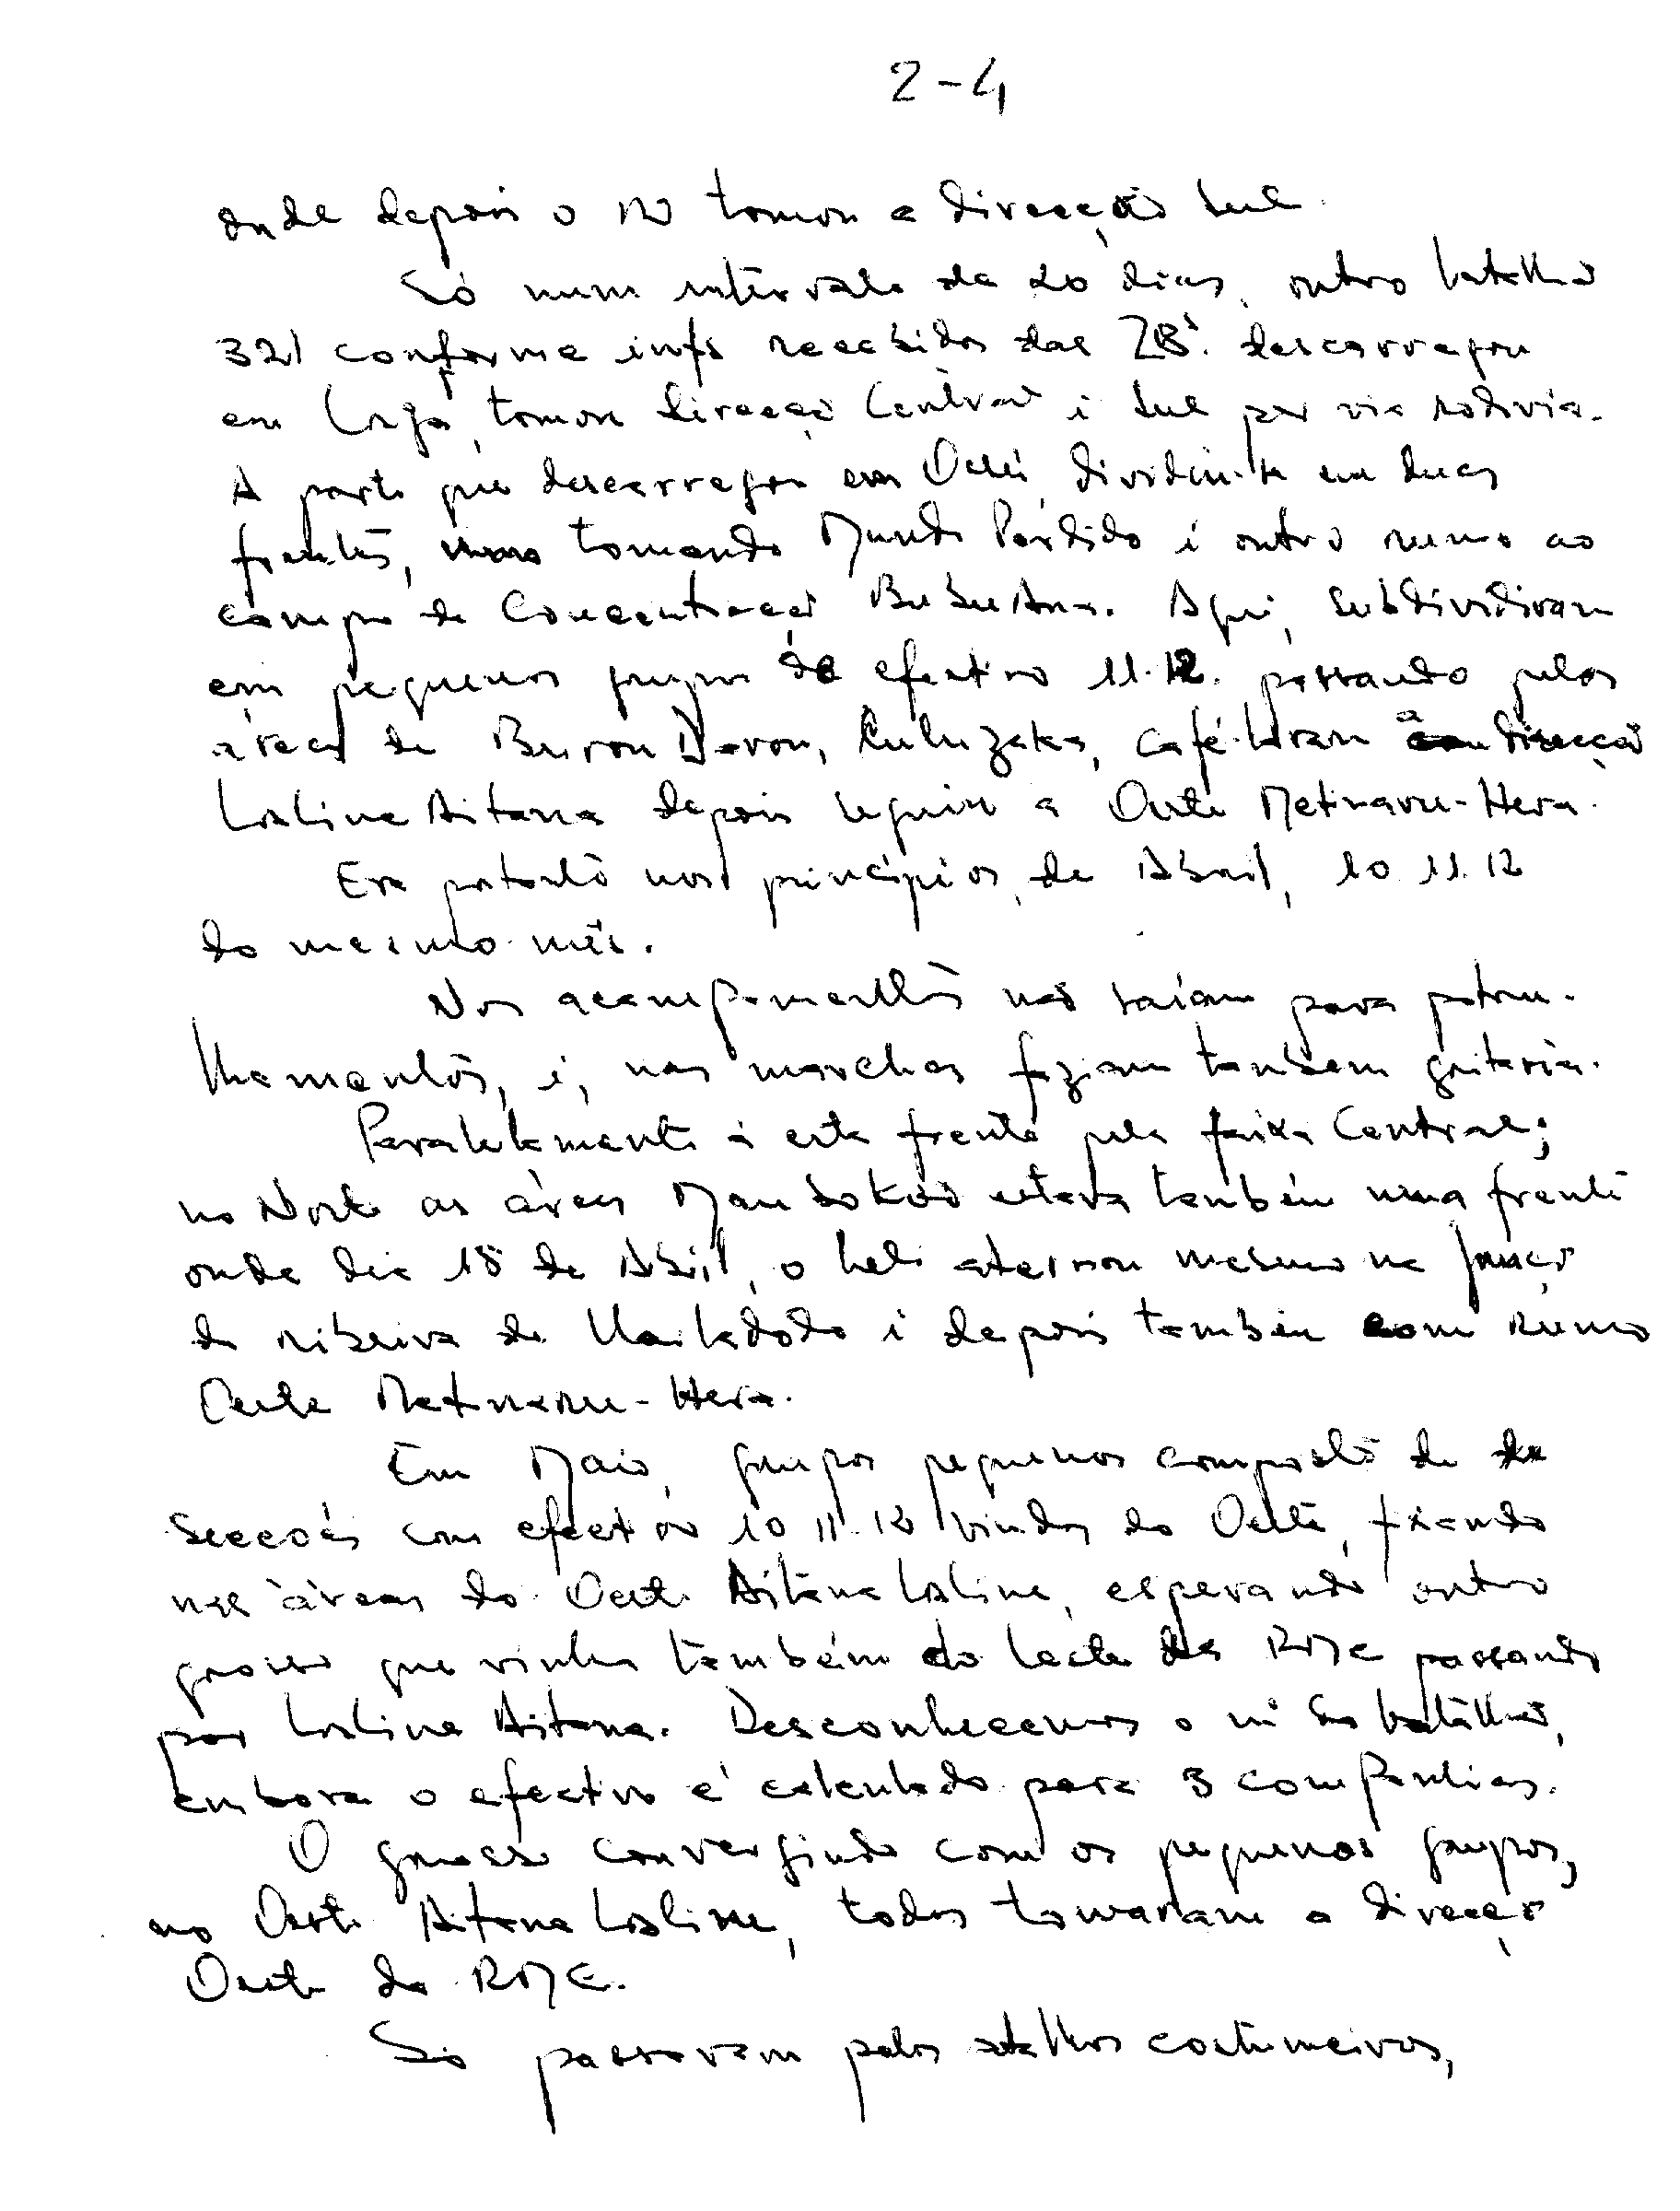 2-4
onde depois o IN tomou a direcção Sul.
Só num intervalo de 20 dias, outro batalhão
321 conforme infs recebidos das ZBs. descarregou
em Laga, tomou direcção Central i Sul por via rodovia.
A parte que descarregou em Ossú, dividiu-se em duas
frentes, uma tomando Mundo Perdido i outro rumo ao
campo de Concentração BuBuAna. Aqui, subdividiram
em pequenos grupos de efectivo 11.12. passando pelas
áreas de Buron Davon, Culuzaka, Café-Laran a direcção
Laline Aitana depois seguiu a Oeste Metinaru-Hera.
Era portanto nos princípios, de Abril, 10 11.12
do mesmo mês.
Nos acampamentos não saíam para patru-
lhamentos, i, nas marchas faziam também gritaria.
Paralelamente à esta frente pela faixa Central;
no Norte as áreas Mau Lokuó estava também uma frente
onde dia 18 de Abril, o heli aterrou mesmo na junção
da ribeira de Uailadodo i depois também com rumo
Oeste Metinaru-Hera.
Em Maio, grupos pequenos composto de
Secções com efectivo 10 11.12 vindos do Oeste, fixando
nas àreas do Oeste Aitana Laline, esperando outro
grosso que vinha também do Leste da RME passando
por Laline Aitana. Desconhecemos o nº do batalhão,
embora o efectivo é calculado para 3 companhias.
O grosso convergindo com os pequenos grupos,
no Oeste Aitana Laline, todos tomaram a direcção
Oeste da RME.
Só passavam pelos atalhos costumeiros,